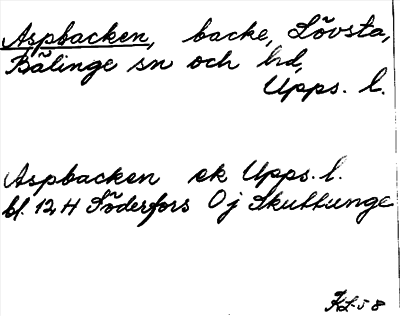 Aspbacken, backe, Lövsta,
Bälinge sn och hd,
Upps. l.
Aspbacken ek Upps. l.
bl. 12 H Söderfors Oj Skuttunge
KL 58